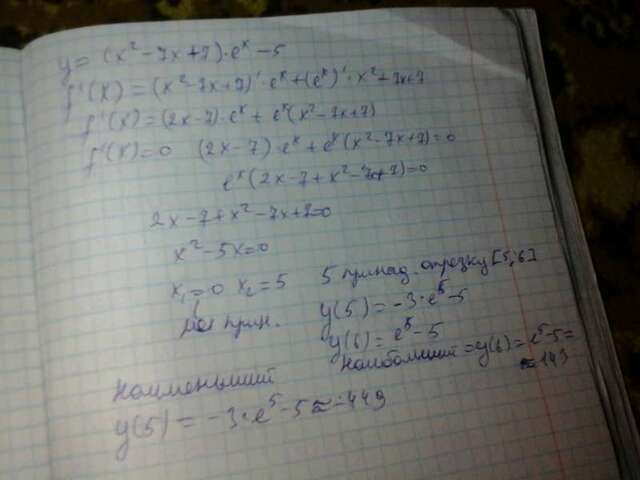 y = (x² - 7x + 7) · eˣ - 5
f'(x) = (x² - 7x + 7)' · eˣ + (eˣ)' · x² + 7x + 7
f'(x) = (2x - 7) · eˣ + eˣ(x² - 7x + 7)
f'(x) = 0 (2x - 7) · eˣ + eˣ(x² - 7x + 7) = 0
eˣ(2x - 7 + x² - 7x + 7) = 0
2x - 7 + x² - 7x + 7 = 0
x² - 5x = 0
x₁ = 0 x₂ = 5
прин.
5 принад. отрезку [5;6]
y(5) = -3 · e⁵ - 5
y(6) = e⁵ - 5
наибольший = y(6) = e⁵ - 5 =
≈ 143
наименьший
y(5) = -3 · e⁵ - 5 ≈ -449